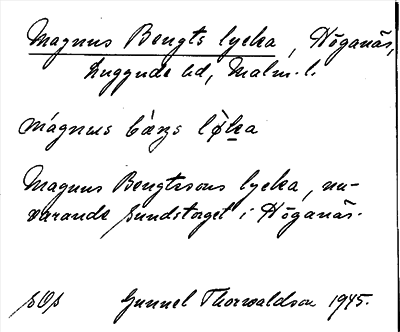 Magnus Bengts lycka, Höganäs,
Luggude hd, Malm. l.
mágnus bàŋs lø̀ka
Magnus Bengtssons lycka, nu-
varande Sundstorget i Höganäs.
Gunnel Thorwaldson 1945.